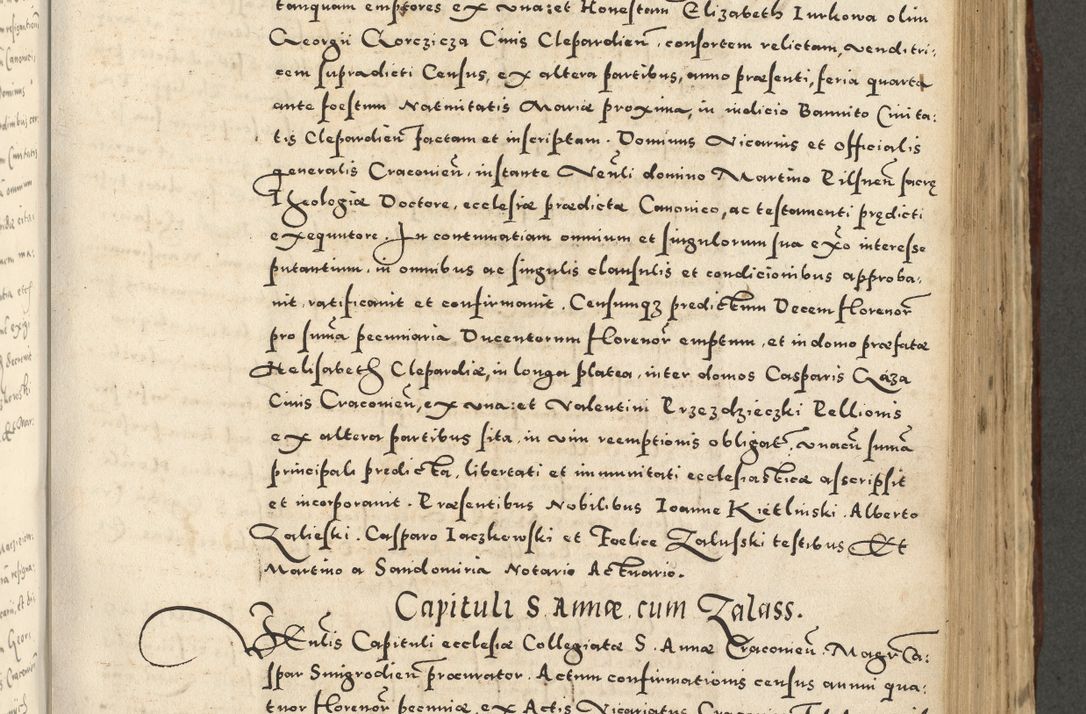 tanquam emptores ex una: et Honestam Elizabeth Iurkowa olim
Georgii Gorczicza Civis Clepardien̄, consortem relictam, venditri:
cem supradicti Census, ex altera partibus, anno præsenti, feria quarta
ante foestum Nativitatis Mariæ proxima, in iudicio Bannito Civita:
tis Clepardien̄ factam et inscriptam. Dominus Vicarius et Officialis
generalis Cracovien̄, instante Ven̄li domino Martino Pilsnen̄ sacrę
Theologiæ Doctore, ecclesiæ prædictæ Canonico, ac testamenti prędicti
exequutore. In contumatiam omnium et singulorum sua ex̄o interesse
putantium, in omnibus ac singulis clausulis et condicionibus approba:
uit, ratificauit et confirmauit. Censumqȝ predictum Decem florenor̄
pro sum̄a pecuniaria Ducentorum florenor̄ emptum, et in domo præfatæ
Helisabeth Clepardiæ, in longa platea, inter domos Casparis Gąza
Civis Cracovien̄, ex una: et Valentini Przezdzieczki Pellionis
ex altera partibus sita, in vim reemptionis obligat̄, unacū sum̄a
principali predicta, libertati et immunitati ecclesiasticæ asscripsit
et incorporauit. Præsentibus Nobilibus Ioanne Kietlinski. Alberto
Zalieski. Casparo Iaczkowski et Foelice Zalusski testibus Et
Martino a Sandomiria Notario Actuario.
Capituli S. Annæ. cum Zalass.
Ven̄lis Capituli ecclesiæ Collegiatæ S. Annæ Cracovien̄. Magr̄ Ca:
spar Smigrodien̄ procurator. Actum confirmationis census annui qua:
tuor florenor̄ pecuniæ, ex Actis Vicariatus